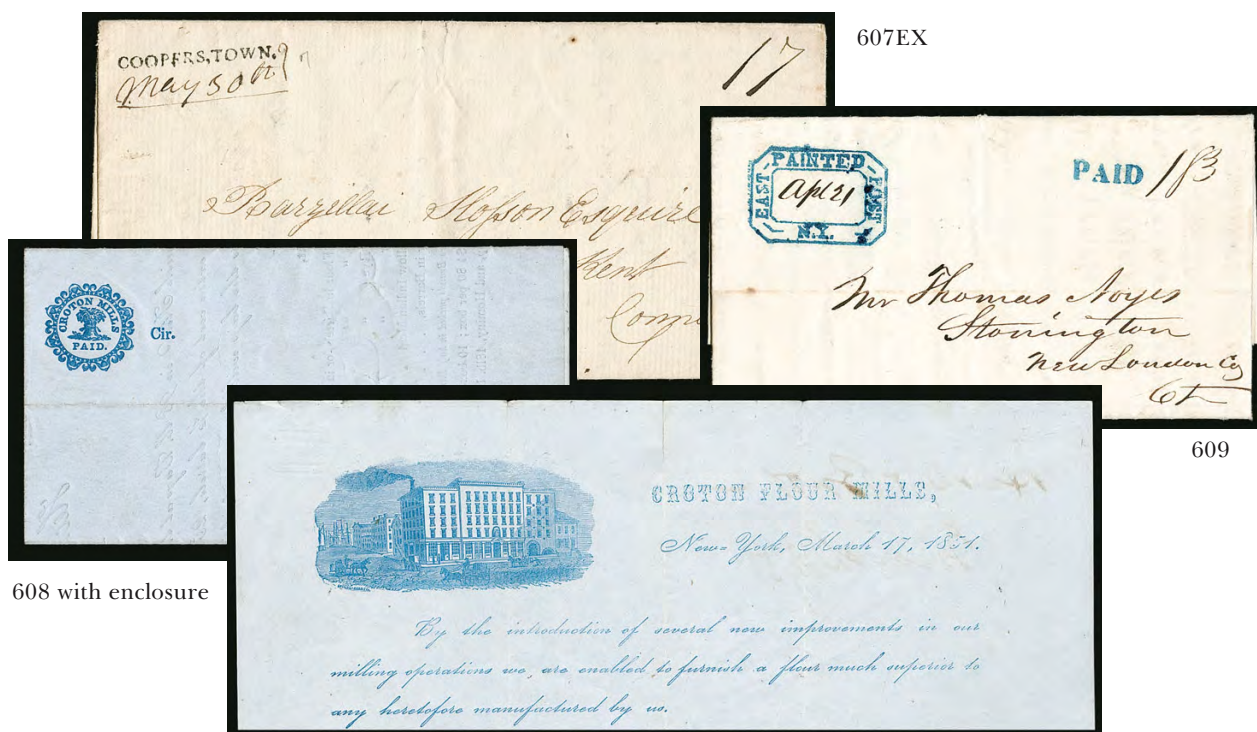 607EX
COOPERS,TOWN.
May 30th
17
Barzillai Slosson Esquire
Kent
Conne
EAST PAINTED POST
Apl 21
N.Y.
PAID 183
Mr Thomas Noyes
Stonington
New London Co
Ct
609
CROTON MILLS
PAID.
Cir.
608 with enclosure
CROTON FLOUR MILLS,
New-York, March 17, 1851.
By the introduction of several new improvements in our
milling operations we are enabled to furnish a flour much superior to
any heretofore manufactured by us.